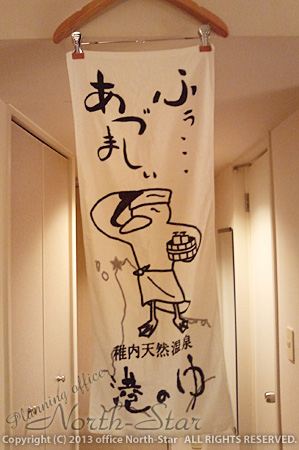 ふぅ・・・
あづましぃ
稚内天然温泉
港のゆ
Planning officer
North-Star
Copyright (C) 2013 office North-Star ALL RIGHTS RESERVED.